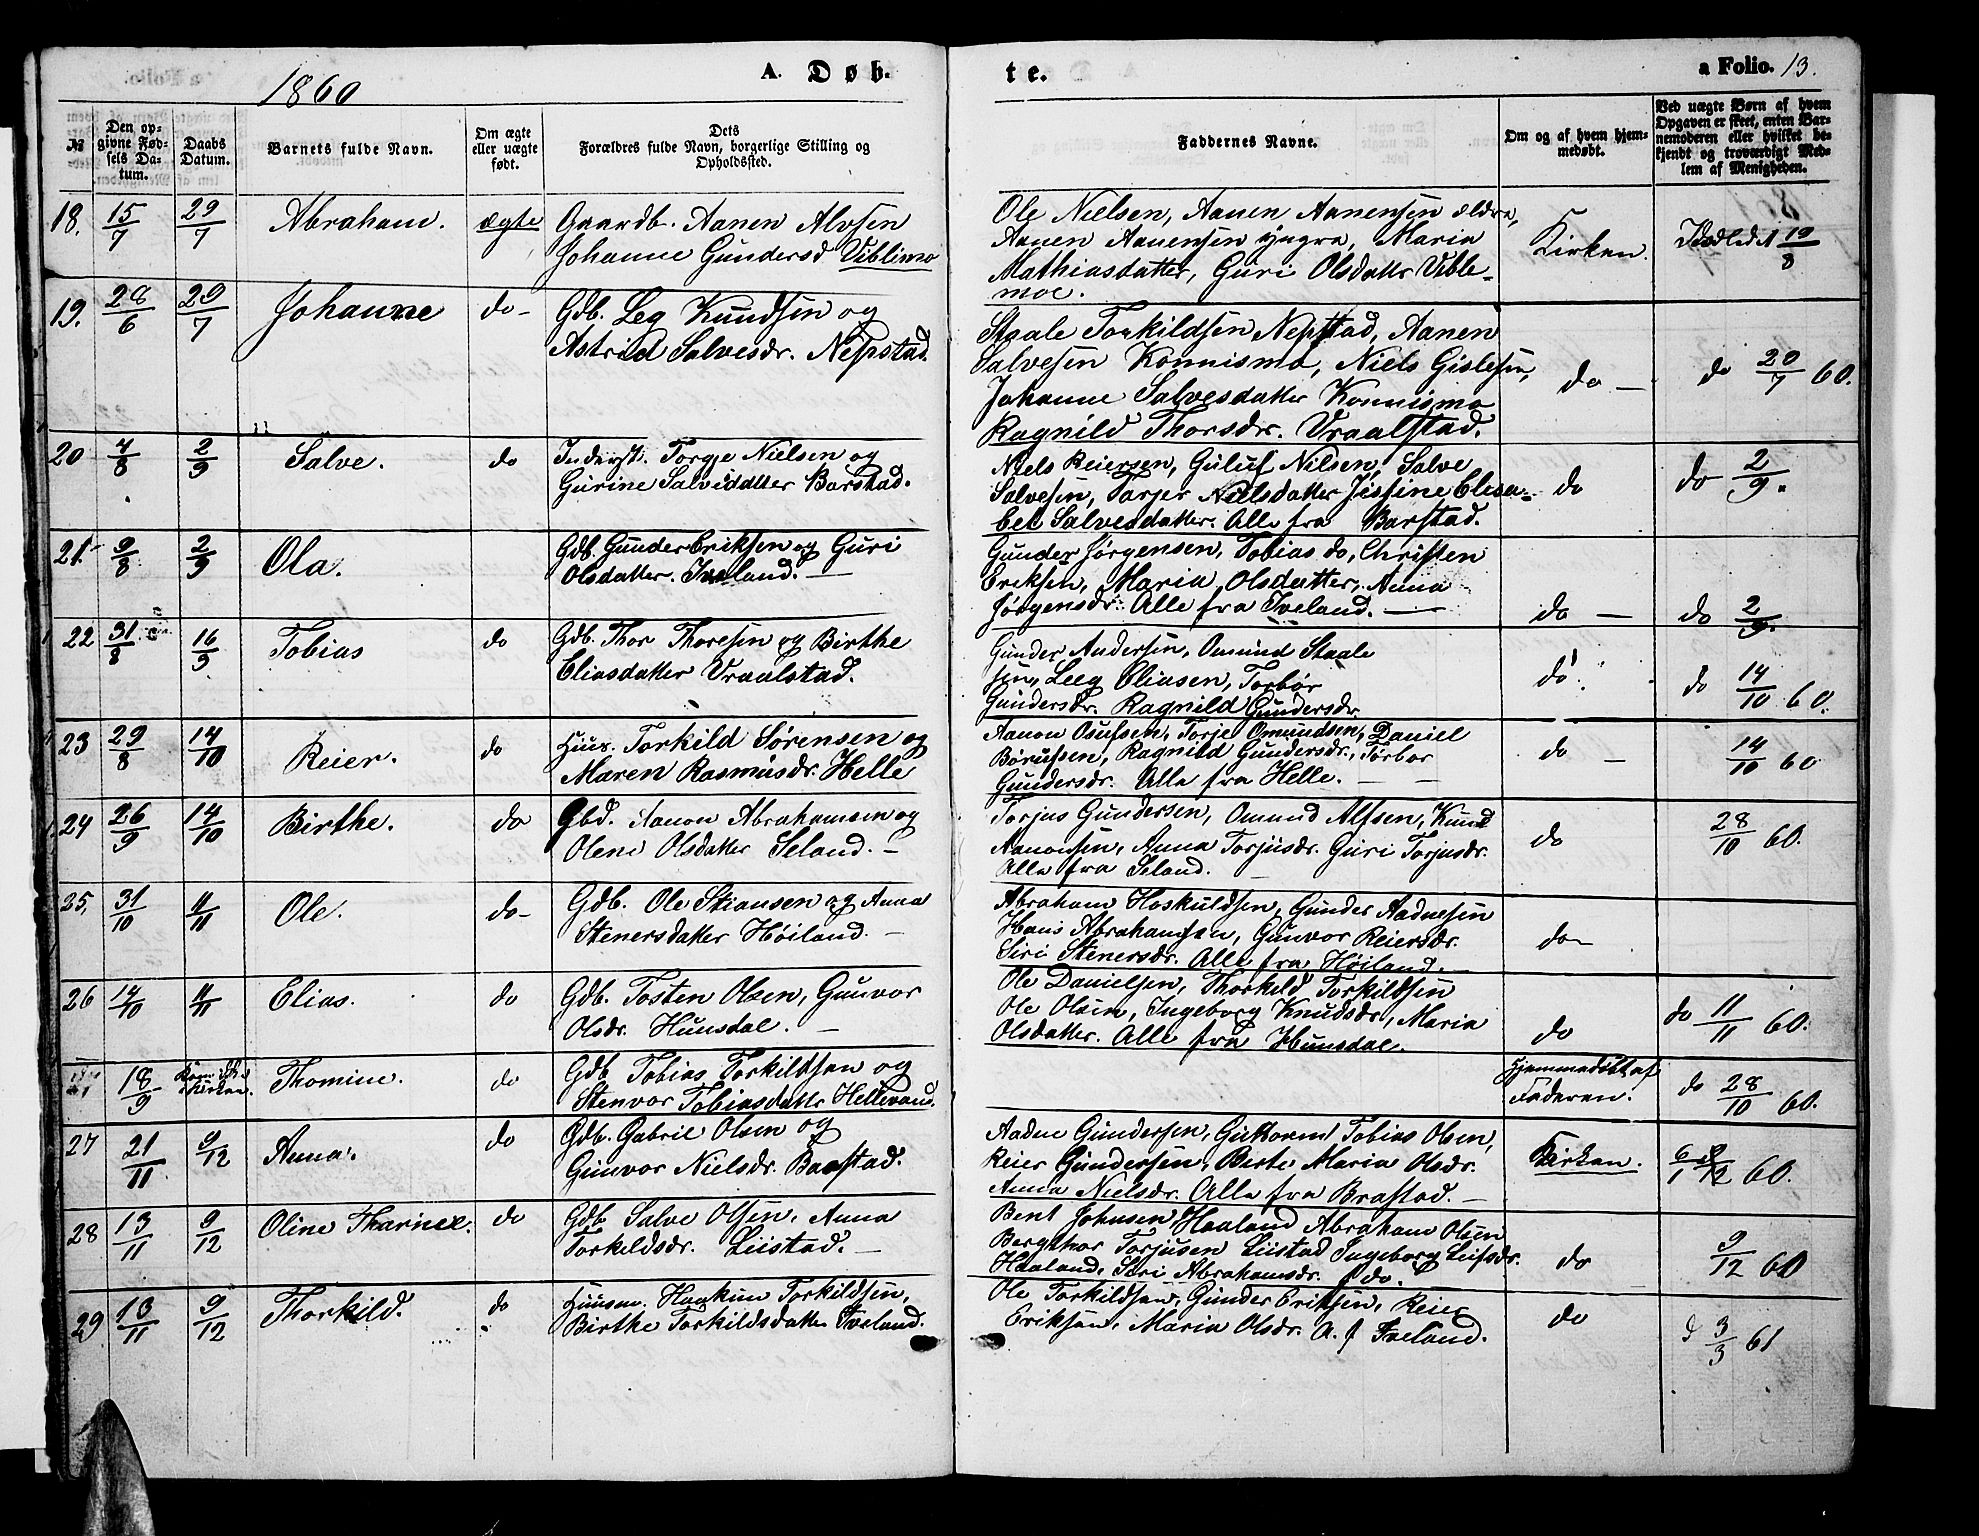 1860
A. Døb.
te.
a Folio. 13.
№
Den opgivne Fødsels Datum.
Daabs Datum.
Barnets fulde Navn.
Om ægte eller uægte født.
Dets
Forældres fulde Navn, borgerlige Stilling og Opholdssted.
Faddernes Navne.
Om og af hvem hjemmedøbt.
Ved uægte Børn af hvem Opgaven er skeet, enten Barnemoderen eller hvilket bekjendt og troværdigt Medlem af Menigheden.
18. 15/7 29/7 Abraham. ægte Gaardb. Aanen Alvsen
Johanne Gundersd Viblimo
Ole Nielsen, Aanen Aanensen ældre,
Aanen Aanensen yngre, Maria
Mathiasdatter, Guri Olsdattr Vible-
moe.
Kirken. 19/8
19. 28/6 29/7 Johanne do- Gdb. Leg Knudsen og
Astrid Salvesdr. Nepstad.
Staale Torkildsen Nepstad, Aanen
Salvesen Konnismo, Niels Gislesen,
Johanne Salvesdatter Konnismo
Ragnild Thorsdr. Vraalstad.
do — do 20/7 60.
20 4/8 2/9 Salve. do Inderst. Torge Nielsen og
Gurine Salvesdatter Barstad.
Niels Reiersen, Guluf Nilsen, Salve
Salvesen, Torjer Nielsdatter Jessine Elisa-
bet Salvesdatter. Alle fra Barstad.
do do 2/9.
21. 9/8 2/9 Ola. Gdb. Gunder Eriksen og Guri
Olsdatter. Iveland. —
Gunder Jørgensen, Tobias do, Christen
Eriksen, Maria Olsdatter, Anna
Jørgensdr. Alle fra Iveland. —
do — do 2/9.
22 31/8 16/9 Tobias do Gdb. Thor Thoresen og Birthe
Eliasdatter Vraalstad.
Gunder Andersen, Omund Staale
sen, Leeg Eliasen, Torbør
Gundersdr. Ragnild Gundersdr.
do do 14/10 60.
23 29/8 14/10 Reier. do Huus. Torkild Sørensen og
Maren Rasmusdr. Helle
Aanon Osufsen, Torje Omundsen, Daniel
Børufsen, Ragnild Gundersdr., Torbor
Gundersdr. Alle fra Helle. —
do — 14/10 60
24 26/9 14/10 Birthe. do Gbd. Aanon Abrahamsen og
Olene Olsdatter Seland. —
Torjus Gundersen, Omund Alfsen, Knud
Aanonsen, Anna Torjusdr. Guri Torjusdr.
Alle fra Seland.
do 28/10 60.
25, 31/10 11/11 Ole. do- Gdb. Ole Stiansen og Anna
Stenersdatter Høiland. —
Abraham Hoskuldsen, Gunder Aadnesen
Hans Abrahamsen, Gunvor Reiersdr.
Siri Stenersdr. Alle fra Høiland. —
do-
26 14/10 11/11 Elias. do Gdb. Tosten Olsen, Gunvor
Olsdr. Hunsdal. —
Ole Danielsen, Thorkild Torkildsen
Ole Olsen, Ingeborg Knudsdr, Maria
Olsdatter. Alle fra Hunsdal.
do do 11/11 60.
18/9 Kirken. Thomine. do Gdb Tobias Torkildsen og
Stenvor Tobiasdattr Hellevans.
Hjemmedøbt af
Faderen. do 28/10 60.
27 21/11 9/12 Anna. do Gdb. Gabril Olsen og
Gunvor Nielsdr. Barstad.
Aadne Gundersen, Guttorm Tobias Olsen,
Reier Gundersen, Berte Maria Olsdr.
Anna Nielsdr. Alle fra Brastad. —
Kirken. 60.
28 13/11 9/12 Oline Tharine. do Gdb Salve Olsen, Anna
Torkildsdr. Liistad. —
Bent Johnsen Haaland Abraham Olsen
Bergthor Torjusen Liistad Ingeborg Leifsdr.
Haaland, Siri Abrahamsdr. f do.
do 9/12 60
29 13/11 9/12 Thorkild. do Huusm. Haakun Torkildsen,
Birthe Torkildsdatter Iveland.
Ole Torkildsen, Gunder Eriksen, Reier
Eriksen, Maria Olsdr. A. f Iveland.
do d 3/3 61